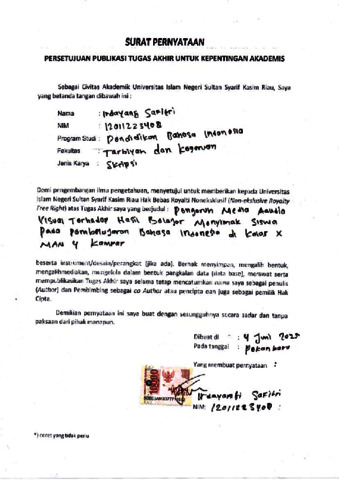 SURAT PERNYATAAN
PERSETUJUAN PUBLIKASI TUGAS AKHIR UNTUK KEPENTINGAN AKADEMIS
Sebagai Civitas Akademik Universitas Islam Negeri Sultan Syarif Kasim Riau, Saya
yang betanda tangan dibawah ini :
Nama : Indayang Safitri
NIM : 12011223408
Program Studi : Pendidikan Bahasa Indonesia
Fakultas : Tarbiyah dan Keguruan
Jenis Karya : Skripsi
Demi pengembangan ilmu pengetahuan, menyetujui untuk memberikan kepada Universitas
Islam Negeri Sultan Syarif Kasim Riau Hak Bebas Royalti Noneksklusif (Non-ekslusive Royalty
Free Right) atas Tugas Akhir saya yang berjudul : Pengaruh Media Audio
Visual Terhadap Hasil Belajar Menyimak Siswa
Pada Pembelajaran Bahasa Indonesia di Kelas X
MAN 4 Kampar
beserta instrument/desain/perangkat (jika ada). Berhak menyimpan, mengalih bentuk,
mengalihmediakan, mengelola dalam bentuk pangkalan data (data base), merawat serta
mempublikasikan Tugas Akhir saya selama tetap mencatumkan nama saya sebagai penulis
(Author) dan Pembimbing sebagai co Author atau pencipta dan juga sebagai pemilik Hak
Cipta.
Demikian pernyataan ini saya buat dengan sesungguhnya secara sadar dan tanpa
paksaan dari pihak manapun.
Dibuat di : 4 Juni 2025
Pada tanggal : Pekanbaru
Yang membuat pernyataan :
10000
Safitri
NIM: 12011223408
*) coret yang tidak perlu